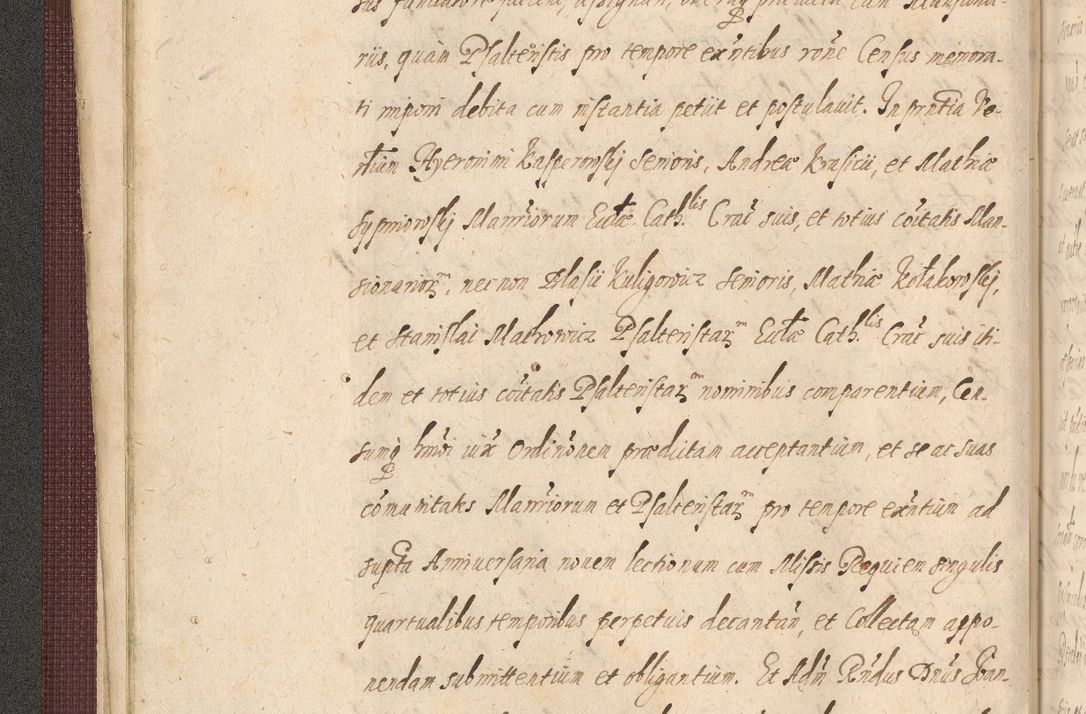 riis, quàm Psalteristis pro tempore exñtibus rõne Census memora-
ti imponi debita cum instantia petiit et postulauit. In pñtia Ve-
rñlium Hyeronimi Kasperowskj Senioris, Andreæ Krasicii, et Mathiæ
Sypniowskj Manñriorum Ecclæ Cath.lis Crac̃ suis, et totius cõitatis Man-
sionarior̃m, nec non Blasii Kuligowicz Senioris, Mathiæ Kołakowskj,
et Stanislai Mathowicz Psalteristar̃m Ecclæ Cath.lis Crac̃ suis iti-
dem et totius cõitatis Psalteristar̃m nominibus comparentium, Cen-
sumq̃ hm̃oi iux̃ Ordinõnem prædictam acceptantium, et se ac suas
cõmunitates Manñriorum et Psalteristar̃m pro tempore exñtium ad
supta Anniuersaria nouem lectionum cum Missis Requiem singulis
quartualibus temporibus perpetuis decantañ, et Collectam appo-
nendam submittentium et obligantium. Et Adm̃ Rñdus Dnũs Joan-